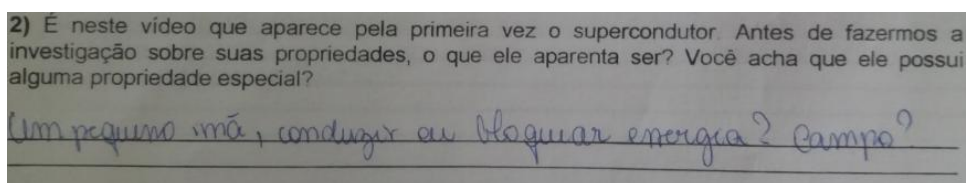 2) É neste vídeo que aparece pela primeira vez o supercondutor. Antes de fazermos a
investigação sobre suas propriedades, o que ele aparenta ser? Você acha que ele possui
alguma propriedade especial?
Um pequeno imã, conduzir ou bloquiar energia? Campo?